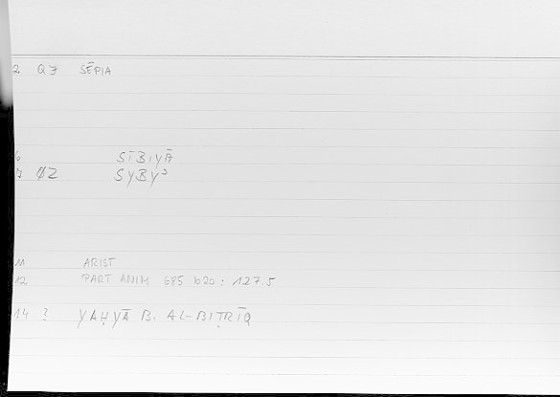 2 QZ SĒPIA
6 SĪBIYĀ
7 ØZ SYBYʾ
11 ARIST
12 PART ANIM 685 b20 : 127.5
14 ? YAḤYĀ B. AL-BIṬRĪQ